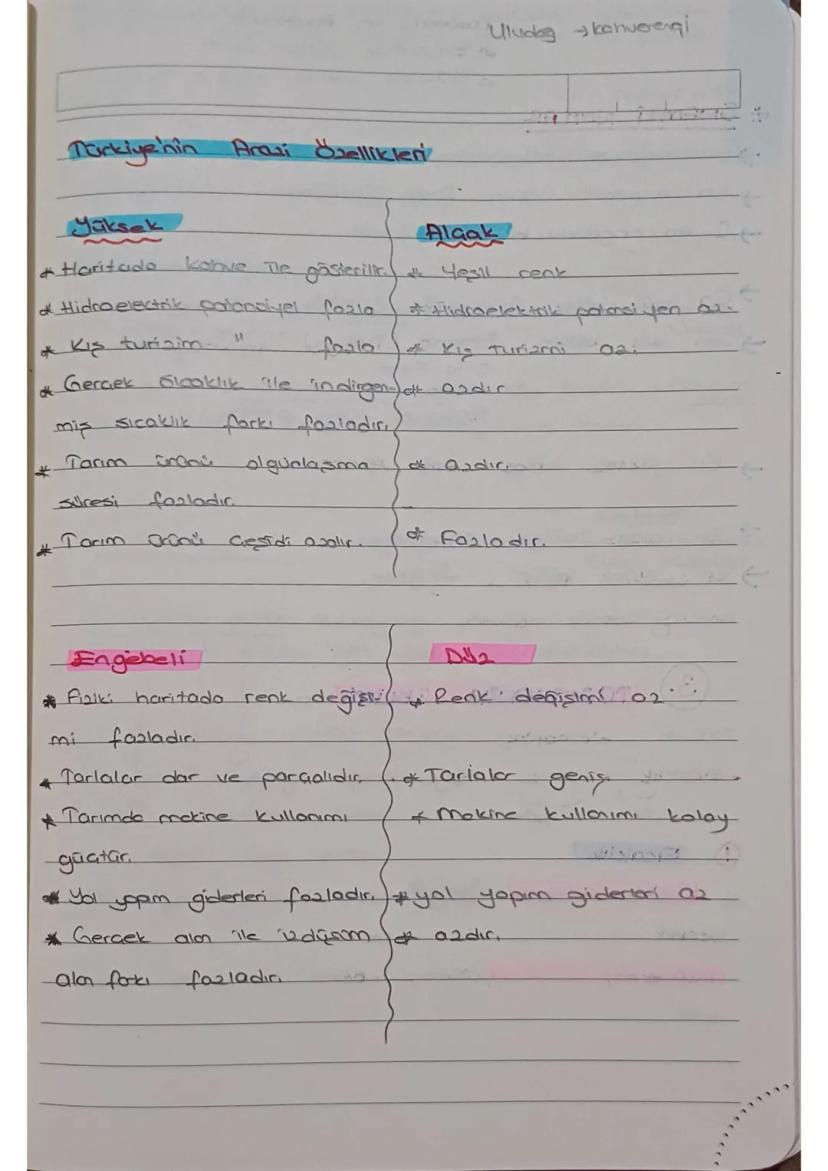 Uludağ → konverergi
Türkiye'nin Arazi Özellikleri
Yüksek
* Haritada kahve ile gösterilir.
* Hidroelectrik potansiyel fazla
* Kış turizim " fazla
* Gercek sıcaklık ile indirgen-
miş sıcaklık farkı fazladır.
* Tarım ürünü olgunlaşma
süresi fazladır.
* Tarım ürünü çeşidi azalır.
Alçak
* Yeşil renk
* Hidroelektrik potansiyen az.
* Kış turizmi az.
* azdır
* azdır.
* Fazladır.
Engebeli
* Fiziki haritada renk değişi-
mi fazladır.
* Tarlalar dar ve parçalıdır.
* Tarımda makine kullanımı
güçtür.
* Yol yapım giderleri fazladır.
* Gercek alan ile izdüşüm
alan farkı fazladır.
Düz
* Renk değişimi az
* Tarlalar geniş.
* Makine kullanımı kolay
* yol yapım giderleri az
* azdır.